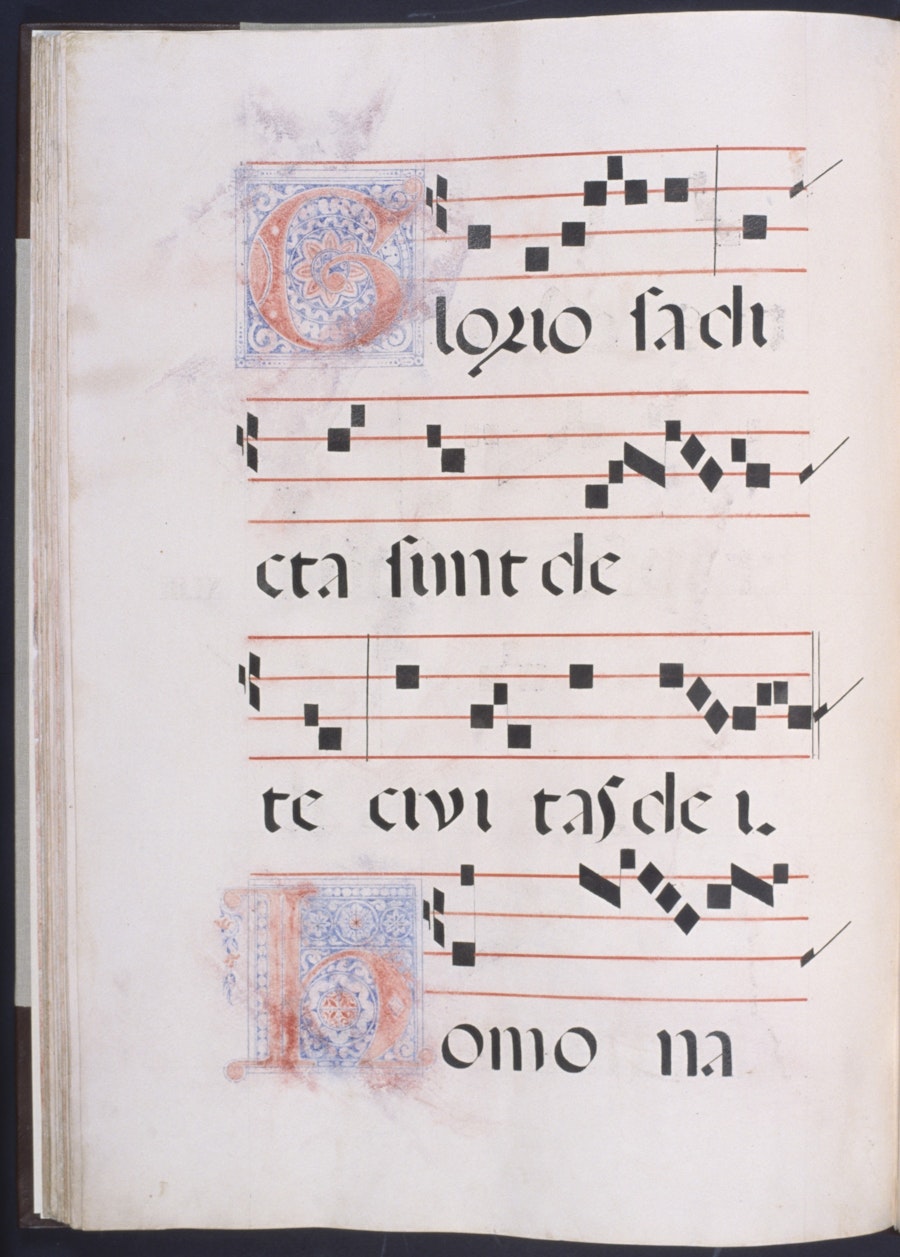 Glorio sa di
cta sunt de
te civi tas de i.
Homo na